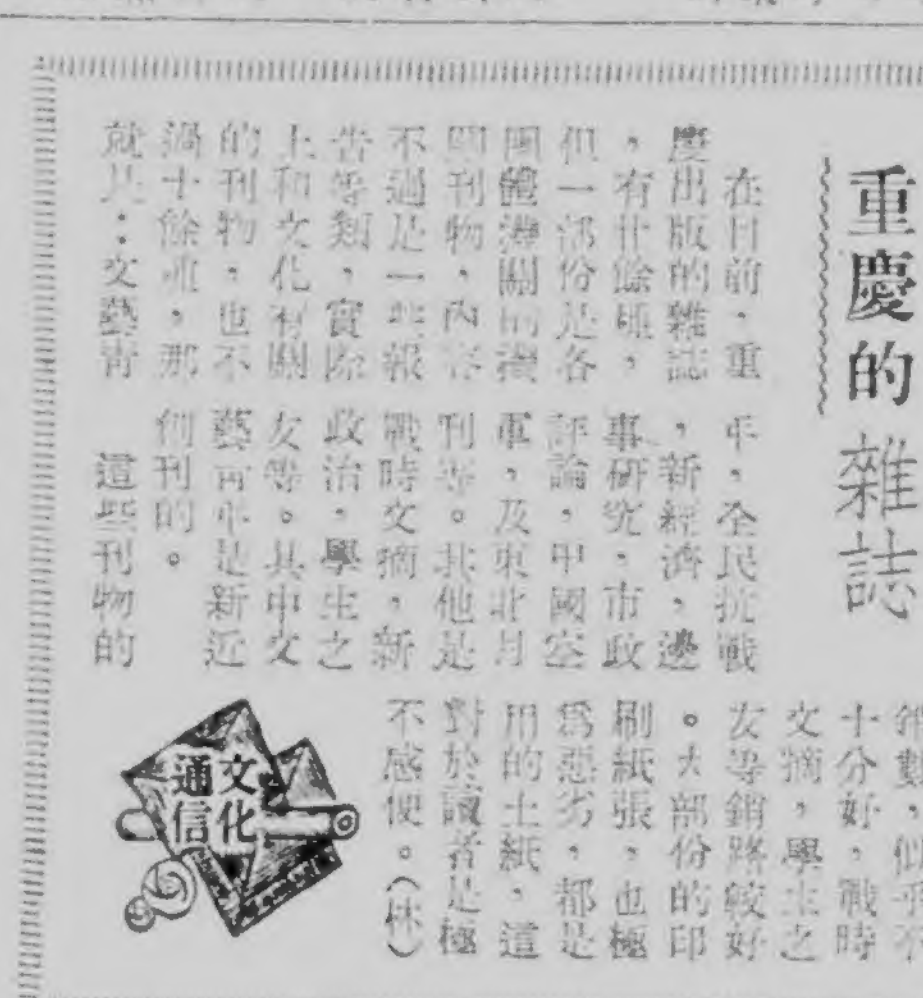 重慶的雜誌
在目前，重
慶出版的雜誌
，有廿餘種，
但一部份是各
團體機關的機
關刊物，內容
不過是一些報
告等類，實際
上和文化有關
的刊物，也不
過十餘種，那
就是：文藝青
年，全民抗戰
，新經濟，邊
事研究，市政
評論，中國空
軍，及東北月
刊等。其他是
戰時文摘，新
政治，學生之
友等。其中文
藝青年是新近
創刊的。
這些刊物的
銷數，似乎不
十分好，戰時
文摘，學生之
友等銷路較好
。大部份的印
刷紙張，也極
爲惡劣，都是
用的土紙，這
對於讀者是極
不感便。（林）
文化
通信